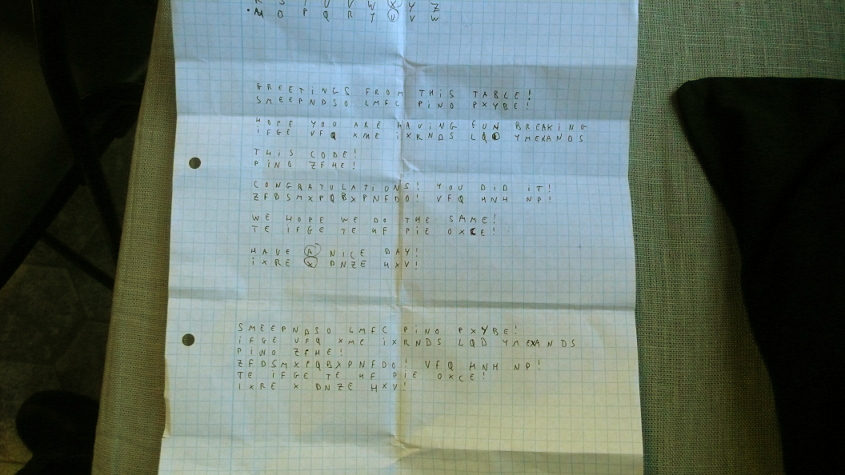 R S T U V W X Y Z
M O P Q R T U V W
GREETINGS FROM THIS TABLE!
SMEEPNDSO LMFC PINO PXYBE!
HOPE YOU ARE HAVING FUN BREAKING
IFGE VFQ XME IXRNDS LQD YMEXANDS
THIS CODE!
PINO ZFHE!
CONGRATULATIONS! YOU DID IT!
ZFDSMXPQBXPNFDO! VFQ HNH NP!
WE HOPE WE DO THE SAME!
TE IFGE TE HF PIE OXCE!
HAVE A NICE DAY!
IXRE X DNZE HXV!
SMEEPNDSO LMFC PINO PXYBE!
IFGE VFQ XME IXRNDS LQD YMEXANDS
PINO ZFHE!
ZFDSMXPQBXPNFDO! VFQ HNH NP!
TE IFGE TE HF PIE OXCE!
IXRE X DNZE HXV!